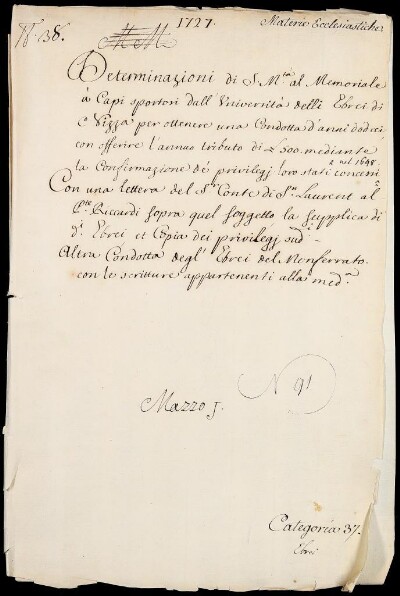 1727.
Materie Ecclesiastiche
N. 38.
Determinazioni di S. M.tà al Memoriale
à Capi sportori dall' Università delli Ebrei di
Nizza per ottenere una Condotta d'anni dodeci
con offerire l'annuo tributo di L 300. mediante
nel 1648.
la Confirmazione de' privilegj loro stati concessi
Con una lettera del S.r Conte di S.n Laurent al
P.nte Riccardi sopra quel soggetto la supplica di
d.i Ebrei et Copia dei privilegj sud.i
Altra Condotta degl' Ebrei del Monferrato.
con le scritture appartenenti alla med.a
N 91
Mazzo j.
Categoria 37.
Ebrei